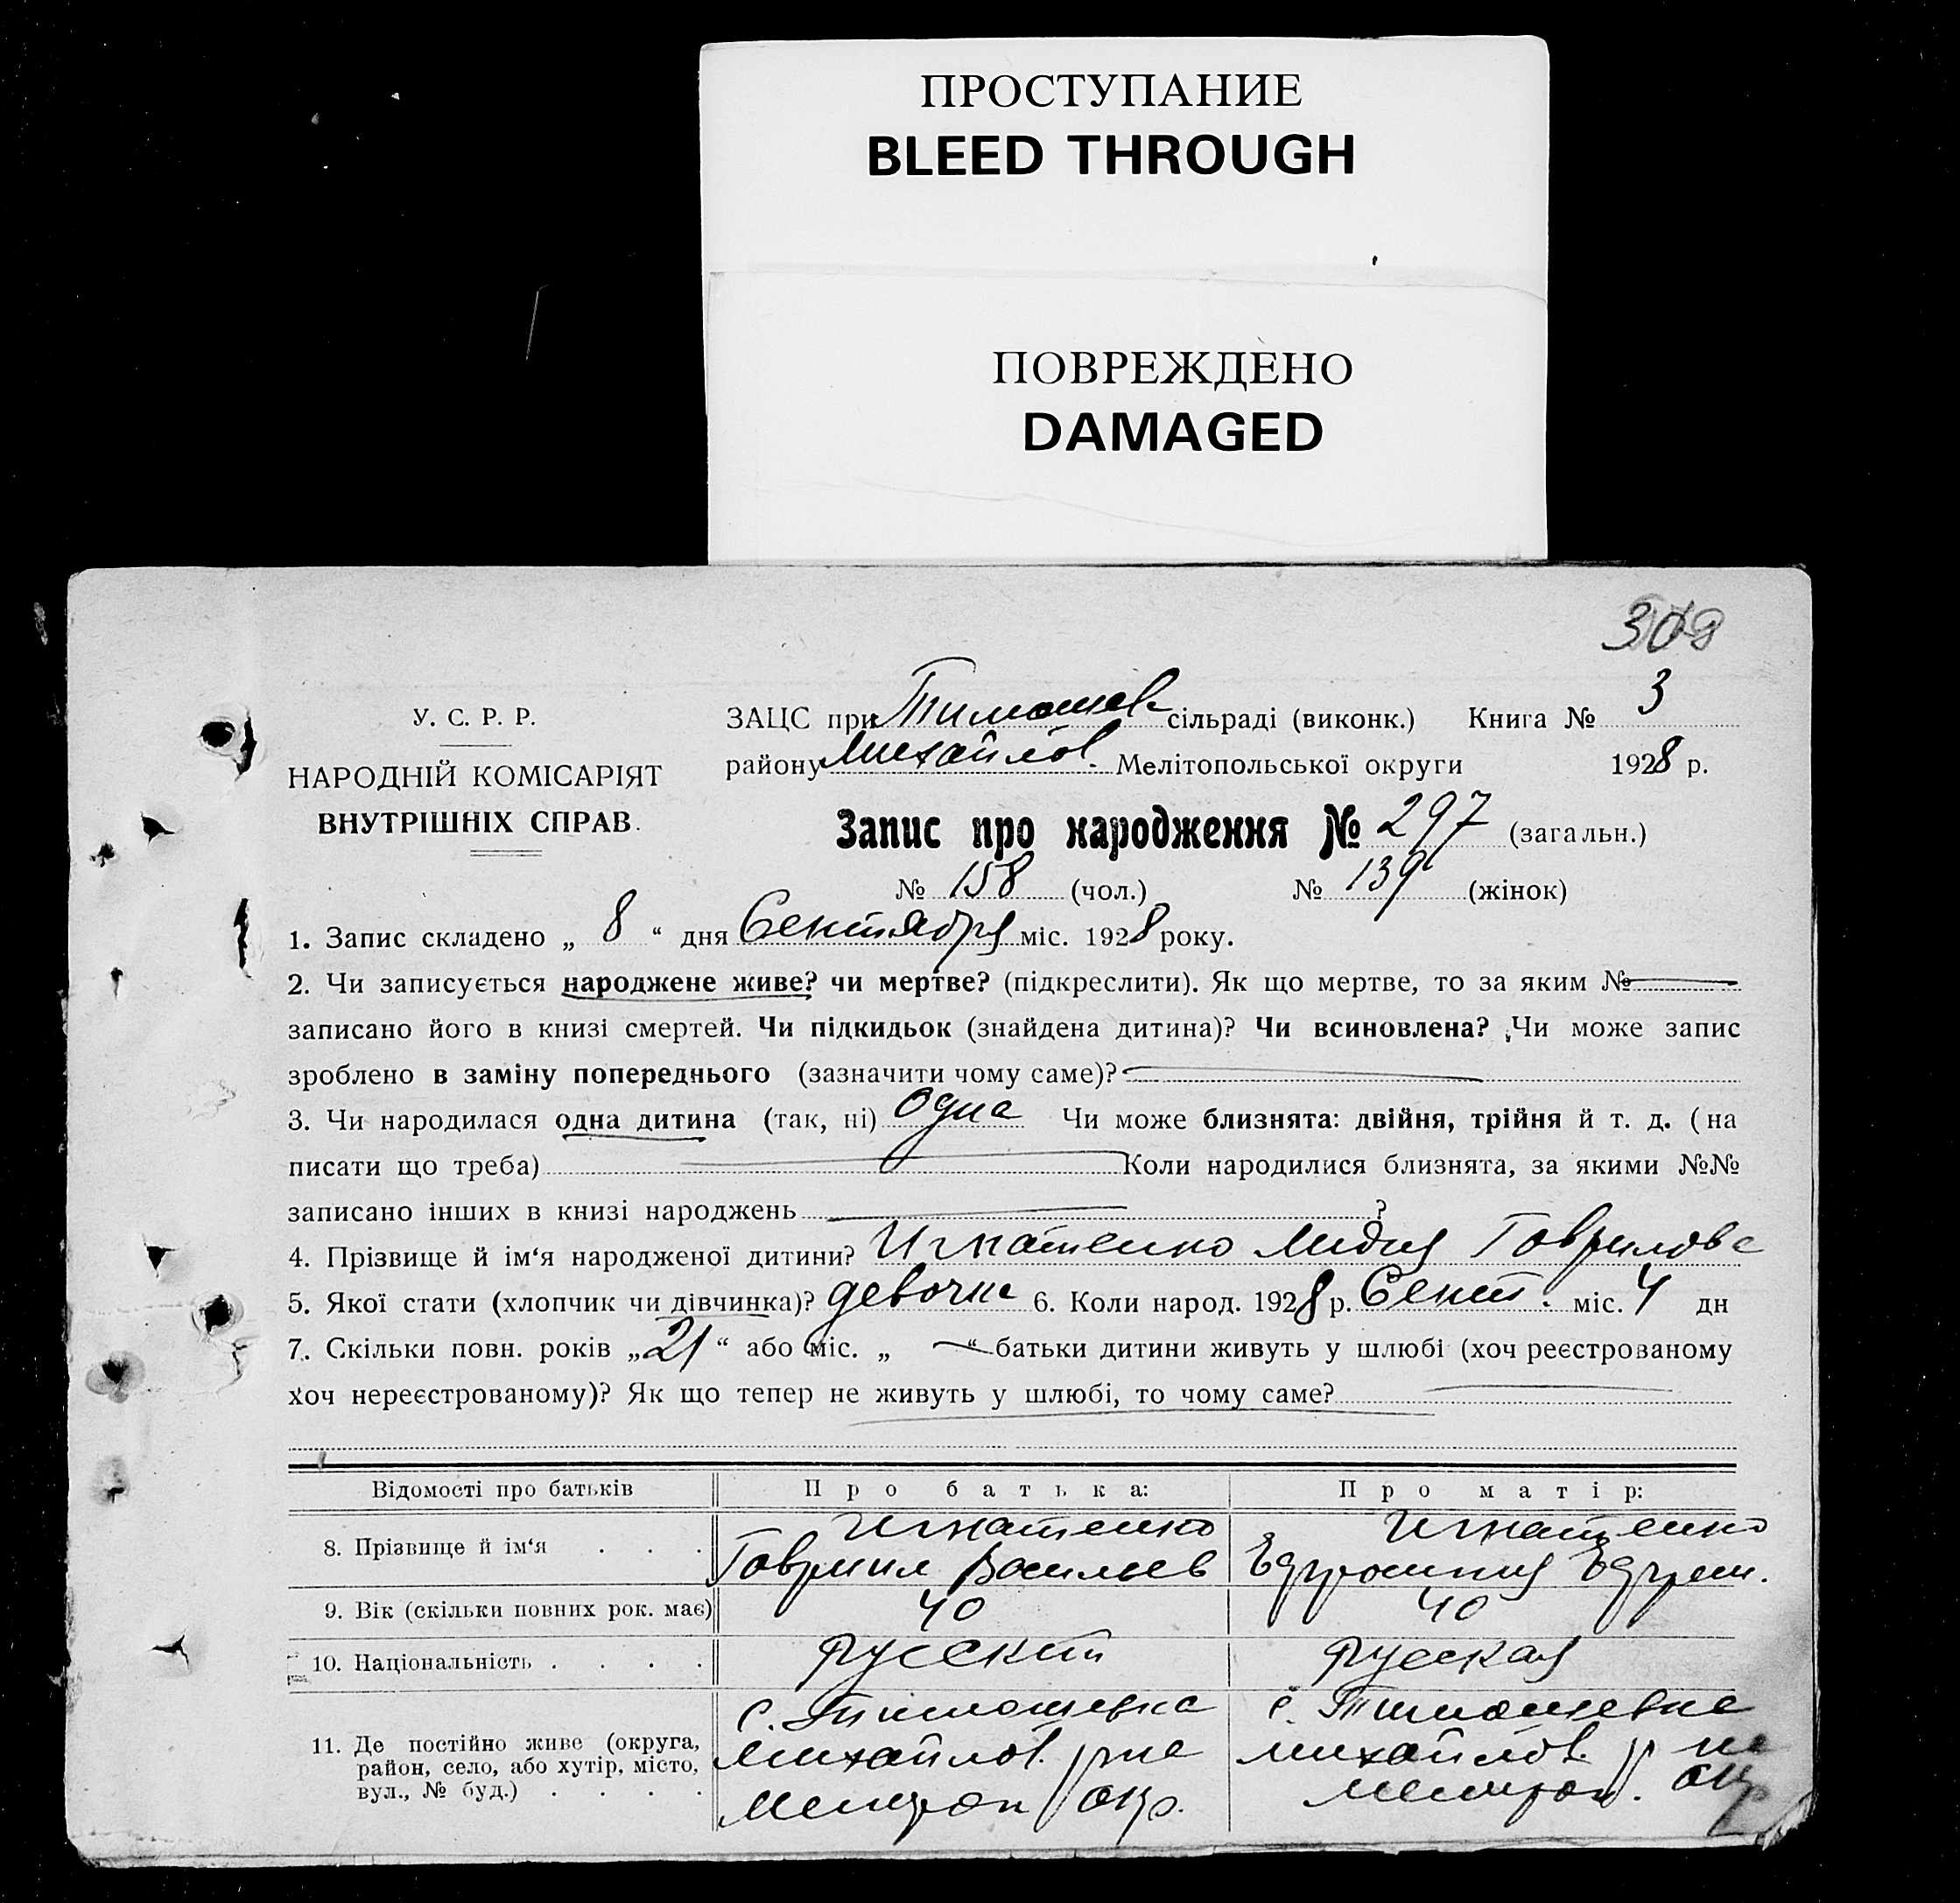 ПРОСТУПАНИЕ
BLEED THROUGH
ПОВРЕЖДЕНО
DAMAGED
У. С. Р. Р.
НАРОДНІЙ КОМІСАРІЯТ
ВНУТРІШНІХ СПРАВ.
ЗАЦС при Тимошев сільраді (виконк.) Книга № 3
району Михайлов. Мелітопольської округи 1928 р.
Запис про народження № 297 (загальн.)
№ 158 (чол.) № 139 (жінок)
1. Запис складено „ 8 “ дня Сентября міс. 1928 року.
2. Чи записується народжене живе? чи мертве? (підкреслити). Як що мертве, то за яким №
записано його в книзі смертей. Чи підкидьок (знайдена дитина)? Чи всиновлена? Чи може запис
зроблено в заміну попереднього (зазначити чому саме)?
3. Чи народилася одна дитина (так, ні) Одна Чи може близнята: двійня, трійня й т. д. (на
писати що треба) Коли народилися близнята, за якими №№
записано інших в книзі народжень ?
4. Прізвище й ім‘я народженої дитини? Игнатенко Лидия Гаврилова
5. Якої стати (хлопчик чи дівчинка)? девочка 6. Коли народ. 1928 р. Сент. міс. 4 дн
7. Скільки повн. років „21“ або міс. „ “ батьки дитини живуть у шлюбі (хоч реєстрованому
хоч нереєстрованому)? Як що тепер не живуть у шлюбі, то чому саме?
Відомості про батьків Про батька: Про матір:
8. Прізвище й ім‘я . . . Игнатенко Гаврил Васильев Игнатенко Ефросиния Ефрем.
9. Вік (скільки повних рок. має) 40 40
10. Національність . . . . Русский Русская
11. Де постійно живе (округа, район, село, або хутір, місто, вул., № буд.) . . . . с. Тимошевка Михайлов. р-на Мелитоп окр. с. Тимошевка Михайлов. р-на Мелитоп. окр